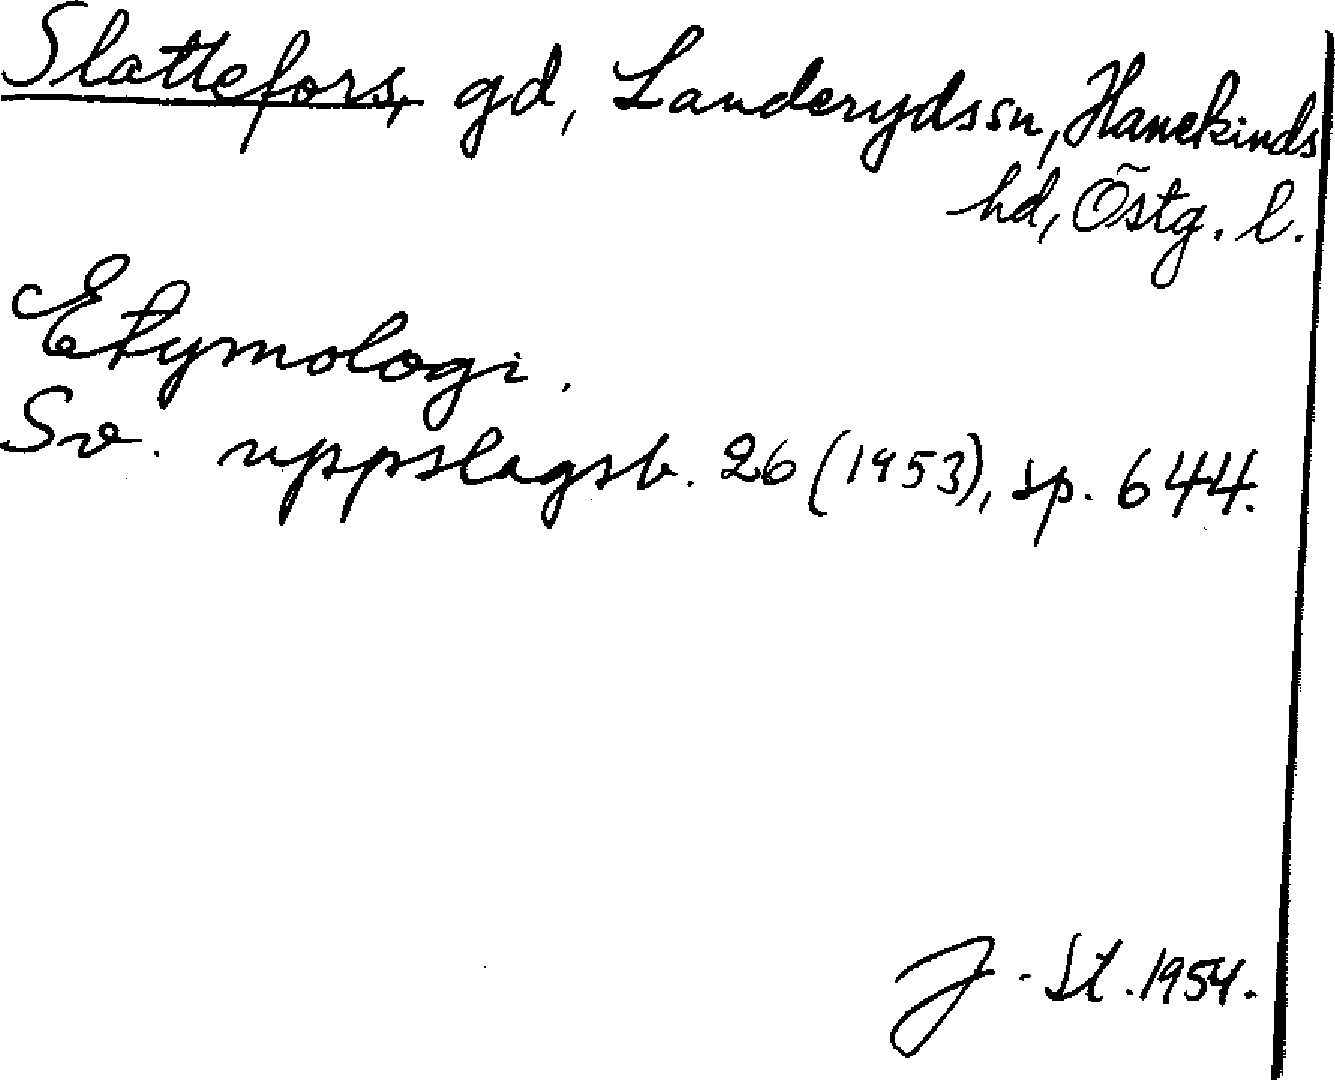 Slattefors, gd, Landerydssn, Hanekinds
hd, Östg. l.
Etymologi.
Sv. uppslagsb. 26 (1953), sp. 644.
J. St. 1954.